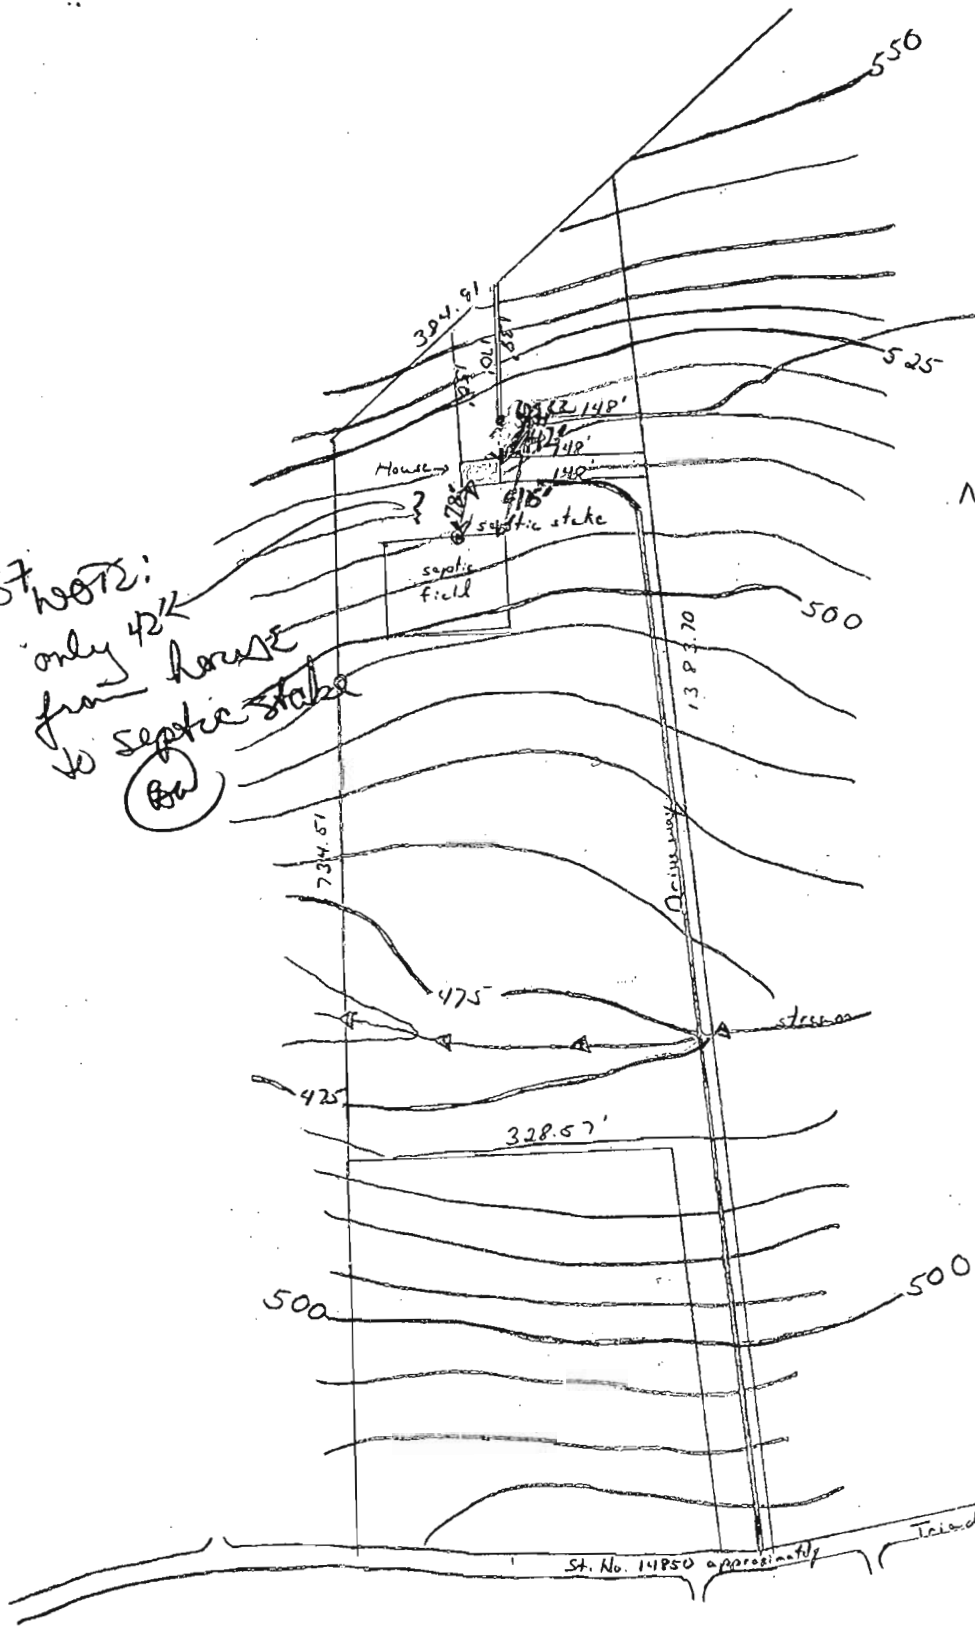 550
384.91
139'
170'
150'
525
148'
148'
148'
House→
78'
septic stake
septic
field
NOTE:
only 42'
from house
to septic stake
500
1383.70
734.51
Driveway
475
stream
475
328.57'
500
500
St. No. 14850 approximately